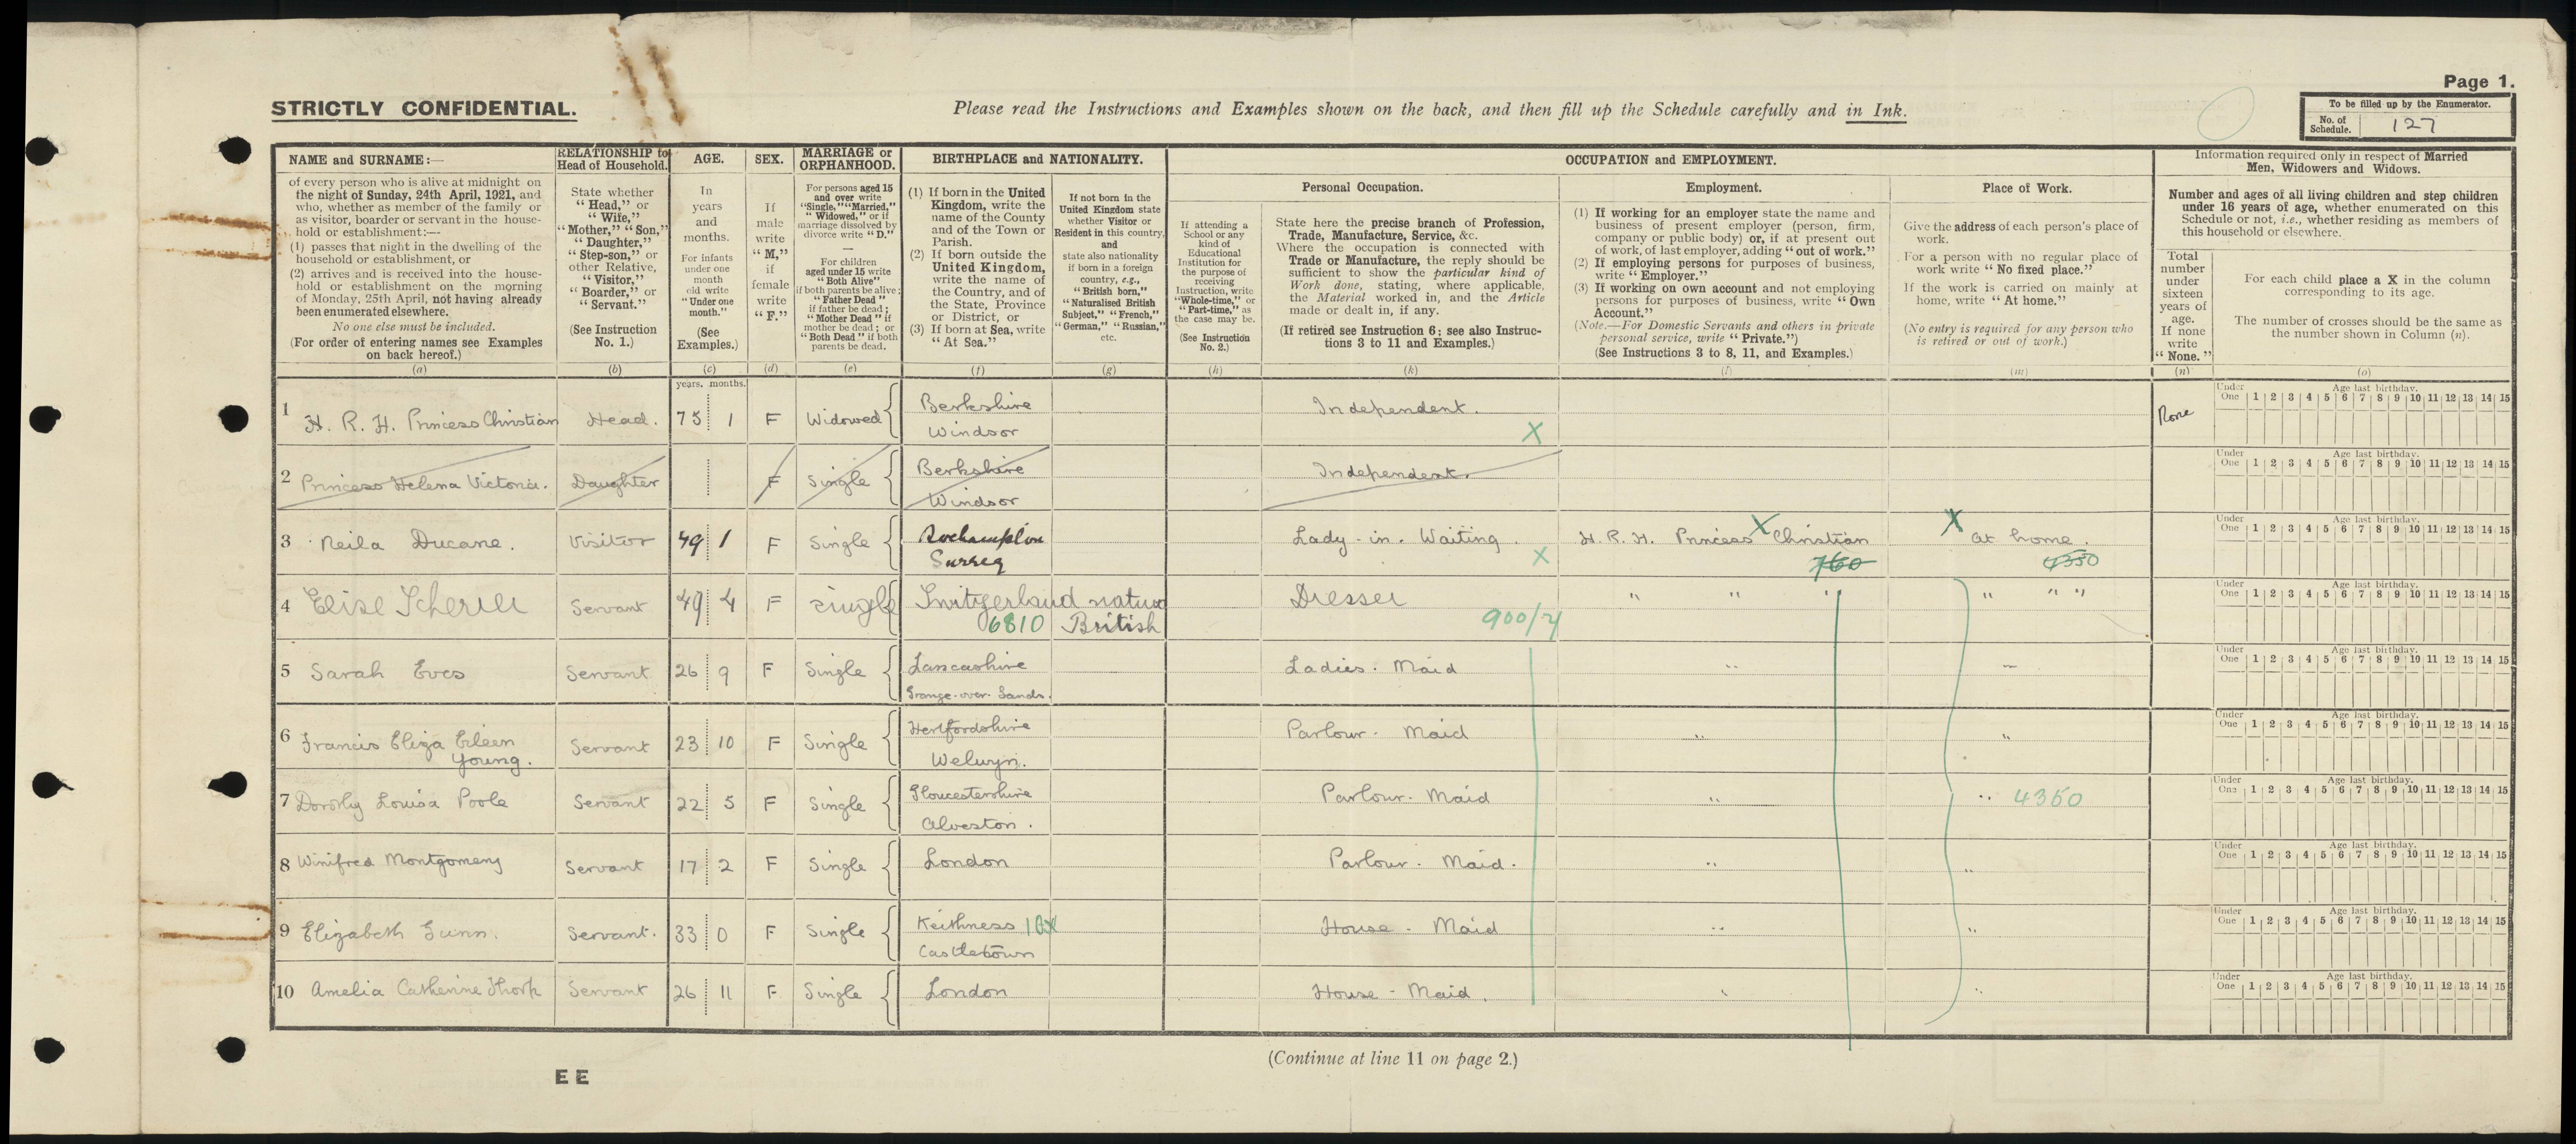 Page 1.
STRICTLY CONFIDENTIAL.
Please read the Instructions and Examples shown on the back, and then fill up the Schedule carefully and in Ink.
To be filled up by the Enumerator.
No. of Schedule. 127
NAME and SURNAME:—
of every person who is alive at midnight on
the night of Sunday, 24th April, 1921, and
who, whether as member of the family or
as visitor, boarder or servant in the house-
hold or establishment:—
(1) passes that night in the dwelling of the
household or establishment, or
(2) arrives and is received into the house-
hold or establishment on the morning
of Monday, 25th April, not having already
been enumerated elsewhere.
No one else must be included.
(For order of entering names see Examples
on back hereof.)
(a)
RELATIONSHIP to
Head of Household.
State whether
"Head," or
"Wife,"
"Mother," "Son,"
"Daughter,"
"Step-son," or
other Relative,
"Visitor,"
"Boarder," or
"Servant."
(See Instruction
No. 1.)
(b)
AGE.
In
years
and
months.
For infants
under one
month
old write
"Under one
month."
(See
Examples.)
(c)
SEX.
If
male
write
"M,"
if
female
write
"F."
(d)
MARRIAGE or
ORPHANHOOD.
For persons aged 15
and over write
"Single," "Married,"
"Widowed," or if
marriage dissolved by
divorce write "D."
—
For children
aged under 15 write
"Both Alive"
if both parents be alive;
"Father Dead"
if father be dead;
"Mother Dead" if
mother be dead; or
"Both Dead" if both
parents be dead.
(e)
BIRTHPLACE and NATIONALITY.
(1) If born in the United
Kingdom, write the
name of the County
and of the Town or
Parish.
(2) If born outside the
United Kingdom,
write the name of
the Country, and of
the State, Province
or District, or
(3) If born at Sea, write
"At Sea."
(f)
If not born in the
United Kingdom state
whether Visitor or
Resident in this country,
and
state also nationality
if born in a foreign
country, e.g.,
"British born,"
"Naturalised British
Subject," "French,"
"German," "Russian,"
etc.
(g)
OCCUPATION and EMPLOYMENT.
If attending a
School or any
kind of
Educational
Institution for
the purpose of
receiving
Instruction, write
"Whole-time," or
"Part-time," as
the case may be.
(See Instruction
No. 2.)
(h)
Personal Occupation.
State here the precise branch of Profession,
Trade, Manufacture, Service, &c.
Where the occupation is connected with
Trade or Manufacture, the reply should be
sufficient to show the particular kind of
Work done, stating, where applicable,
the Material worked in, and the Article
made or dealt in, if any.
(If retired see Instruction 6; see also Instruc-
tions 3 to 11 and Examples.)
(k)
Employment.
(1) If working for an employer state the name and
business of present employer (person, firm,
company or public body) or, if at present out
of work, of last employer, adding "out of work."
(2) If employing persons for purposes of business,
write "Employer."
(3) If working on own account and not employing
persons for purposes of business, write "Own
Account."
(Note.—For Domestic Servants and others in private
personal service, write "Private.")
(See Instructions 3 to 8, 11, and Examples.)
(l)
Place of Work.
Give the address of each person's place of
work.
For a person with no regular place of
work write "No fixed place."
If the work is carried on mainly at
home, write "At home."
(No entry is required for any person who
is retired or out of work.)
(m)
Information required only in respect of Married
Men, Widowers and Widows.
Number and ages of all living children and step children
under 16 years of age, whether enumerated on this
Schedule or not, i.e., whether residing as members of
this household or elsewhere.
Total
number
under
sixteen
years of
age.
If none
write
"None."
(n)
For each child place a X in the column
corresponding to its age.
The number of crosses should be the same as
the number shown in Column (n).
(o)
years. months.
1 H. R. H. Princess Christian Head. 75 1 F Widowed Berkshire Independent. None
Windsor X
Under One Age last birthday. 1 2 3 4 5 6 7 8 9 10 11 12 13 14 15
2 Princess Helena Victoria. Daughter F Single Berkshire Independent.
Windsor
Under One Age last birthday. 1 2 3 4 5 6 7 8 9 10 11 12 13 14 15
3 Neila Ducane. Visitor 49 1 F Single Roehampton Lady-in-Waiting. H. R. H. Princess X Christian X at home.
Surrey X 760 4350
Under One Age last birthday. 1 2 3 4 5 6 7 8 9 10 11 12 13 14 15
4 Elise Scherer Servant 49 4 F Single Switzerland Dresser " " " " " "
6810 British 900/4
Under One Age last birthday. 1 2 3 4 5 6 7 8 9 10 11 12 13 14 15
5 Sarah Eves Servant 26 9 F Single Lancashire Ladies. Maid " "
Grange-over-Sands.
Under One Age last birthday. 1 2 3 4 5 6 7 8 9 10 11 12 13 14 15
6 Francis Eliza Eileen Young. Servant 23 10 F Single Hertfordshire Parlour-Maid " "
Welwyn.
Under One Age last birthday. 1 2 3 4 5 6 7 8 9 10 11 12 13 14 15
7 Dorothy Louisa Poole Servant 22 5 F Single Gloucestershire Parlour-Maid " " 4350
Alveston.
Under One Age last birthday. 1 2 3 4 5 6 7 8 9 10 11 12 13 14 15
8 Winifred Montgomery Servant 17 2 F Single London Parlour-Maid. " "
Under One Age last birthday. 1 2 3 4 5 6 7 8 9 10 11 12 13 14 15
9 Elizabeth Gunn. Servant. 33 0 F Single Keithness House-Maid " "
Castletown
Under One Age last birthday. 1 2 3 4 5 6 7 8 9 10 11 12 13 14 15
10 Amelia Catherine Thorp Servant 26 11 F Single London House-Maid. " "
Under One Age last birthday. 1 2 3 4 5 6 7 8 9 10 11 12 13 14 15
(Continue at line 11 on page 2.)
E E